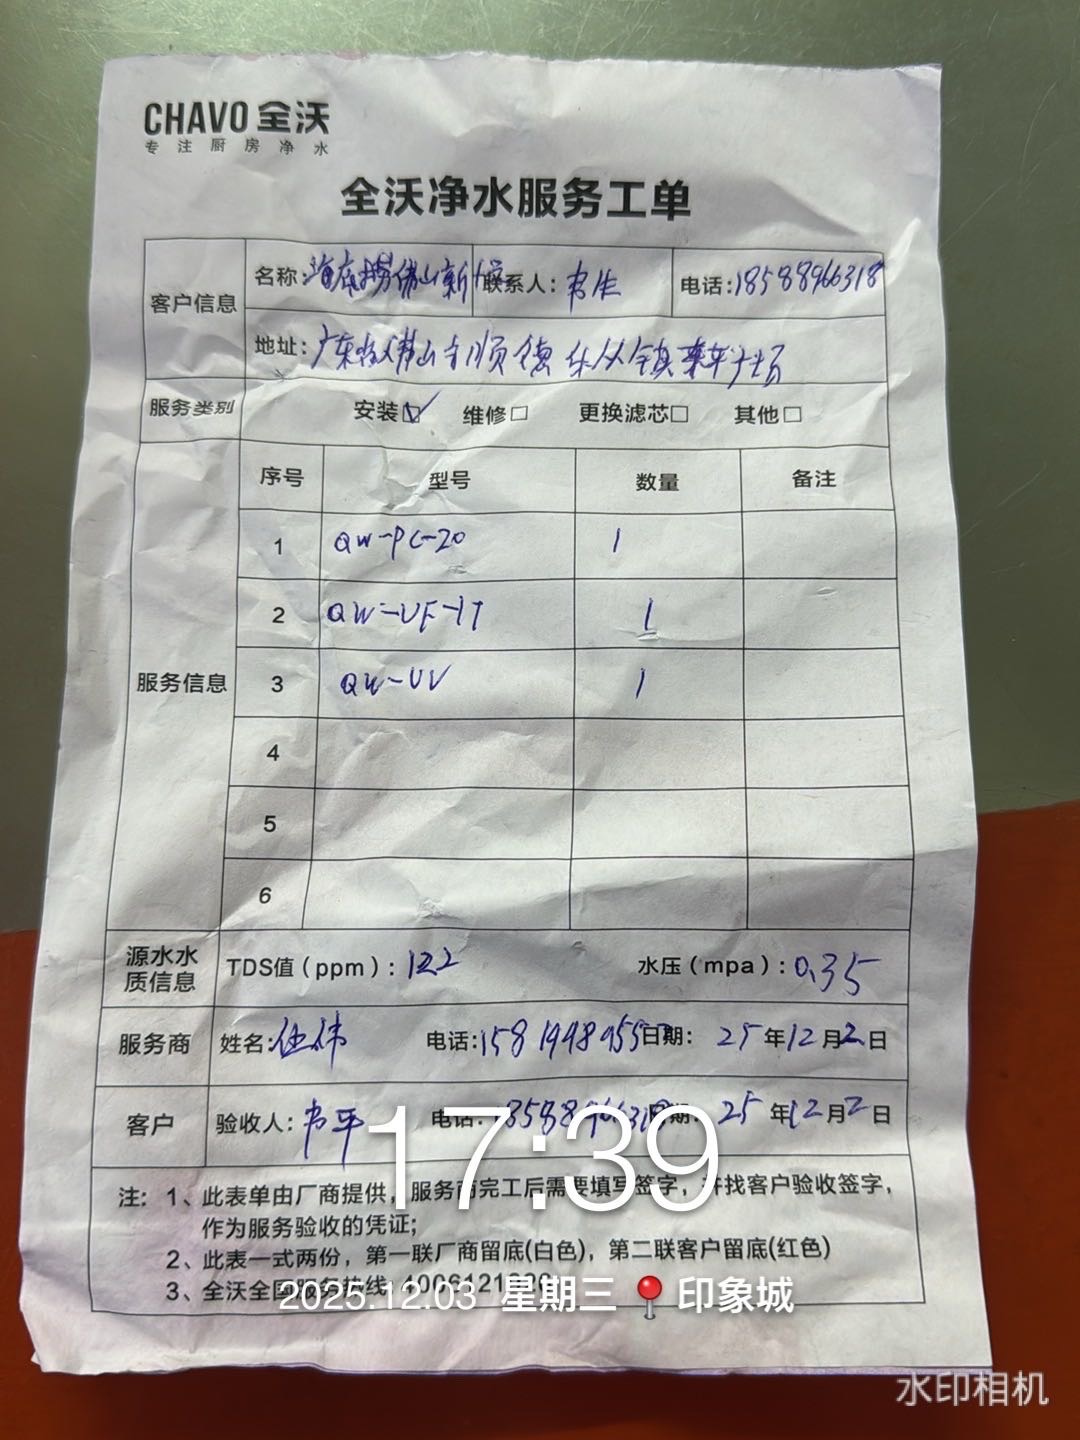 CHAVO 全沃
专注厨房净水
全沃净水服务工单
客户信息 名称:海底捞佛山新 联系人: 韦生 电话:18588966318
地址: 广东省佛山市顺德乐从镇
服务类别 安装☑ 维修□ 更换滤芯□ 其他□
服务信息 序号 型号 数量 备注
1 QW-PC-20 1
2 QW-UF-1T 1
3 QW-UV 1
4
5
6
源水水质信息 TDS值(ppm): 122 水压(mpa): 0.35
服务商 姓名: 电话: 日期: 25年12月2日
客户 验收人: 电话: 日期: 25年12月2日
17:39
注: 1、此表单由厂商提供, 服务商完工后需要填写签字, 并找客户验收签字,
作为服务验收的凭证;
2、此表一式两份, 第一联厂商留底(白色), 第二联客户留底(红色)
3、全沃全国服务热线:
2025.12.03 星期三 印象城
水印相机